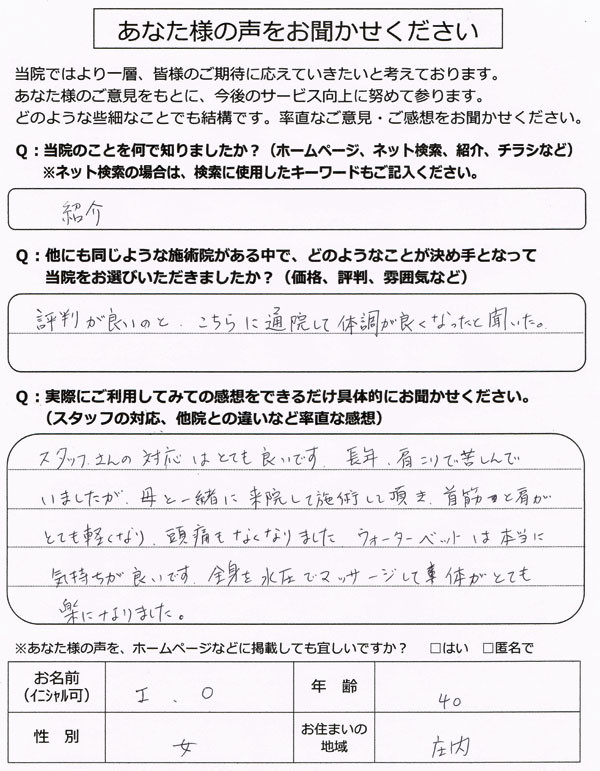 あなた様の声をお聞かせください
当院ではより一層、皆様のご期待に応えていきたいと考えております。
あなた様のご意見をもとに、今後のサービス向上に努めて参ります。
どのような些細なことでも結構です。率直なご意見・ご感想をお聞かせください。
Q：当院のことを何で知りましたか？（ホームページ、ネット検索、紹介、チラシなど）
※ネット検索の場合は、検索に使用したキーワードもご記入ください。
紹介
Q：他にも同じような施術院がある中で、どのようなことが決め手となって
当院をお選びいただきましたか？（価格、評判、雰囲気など）
評判が良いのと、こちらに通院して体調が良くなったと聞いた。
Q：実際にご利用してみての感想をできるだけ具体的にお聞かせください。
（スタッフの対応、他院との違いなど率直な感想）
スタッフさんの対応はとても良いです。長年、肩こりで苦しんで
いましたが、母と一緒に来院して施術して頂き、首筋と肩が
とても軽くなり、頭痛もなくなりました ウォーターベットは本当に
気持ちが良いです。全身を水圧でマッサージして体がとても
楽になりました。
※あなた様の声を、ホームページなどに掲載しても宜しいですか？ □はい □匿名で
お名前
（イニシャル可）
I．O
年 齢
40
性 別
女
お住まいの
地域
庄内